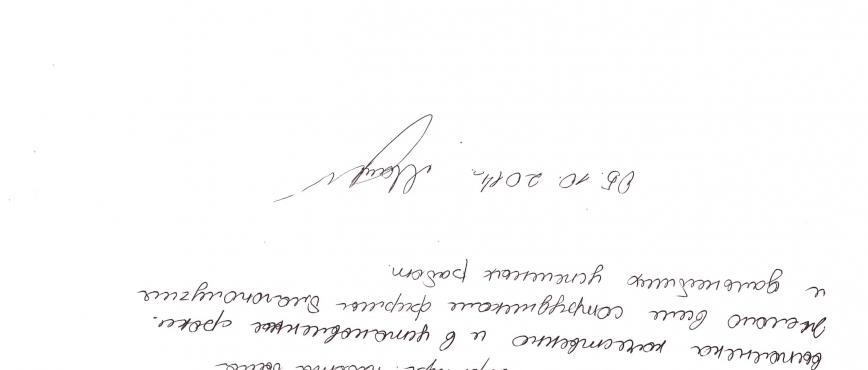 работа была
выполнена качественно и в установленные сроки.
Желаю всем сотрудникам фирмы благополучия
и дальнейших успешных работ.
05.10.2011г.